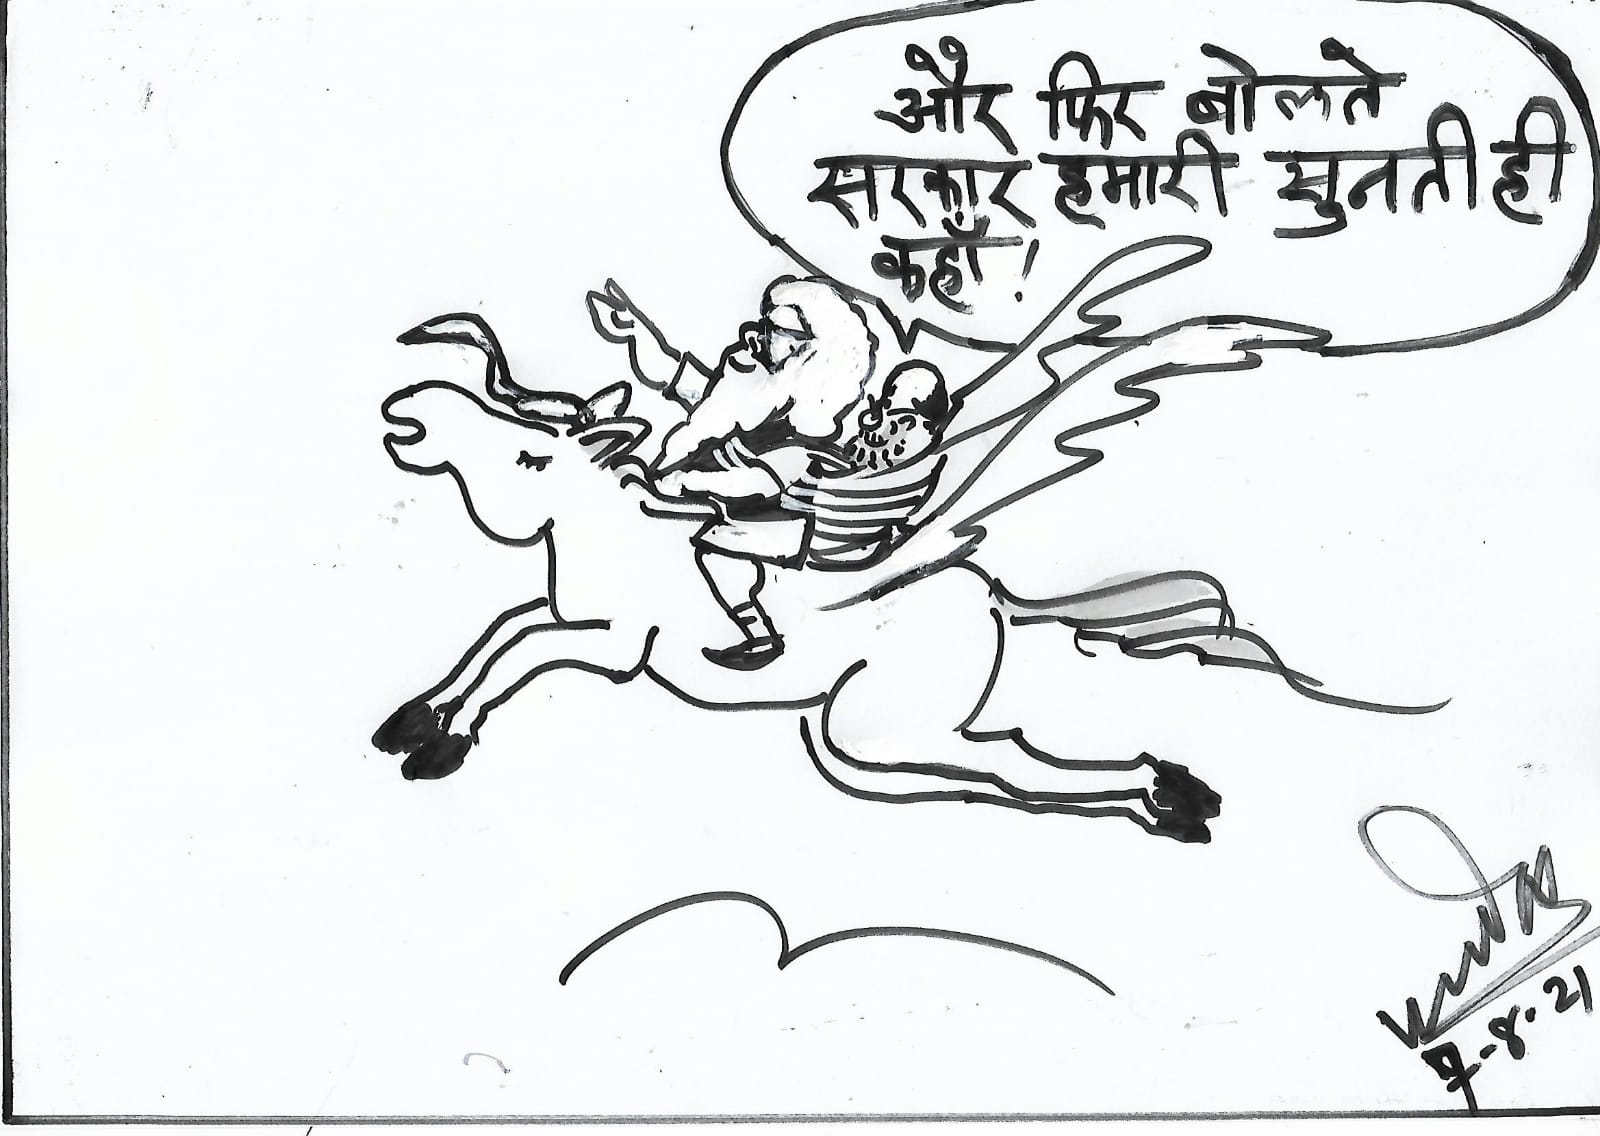 और फिर बोलते
सरकार हमारी सुनती ही
कहाँ!
7-8.21